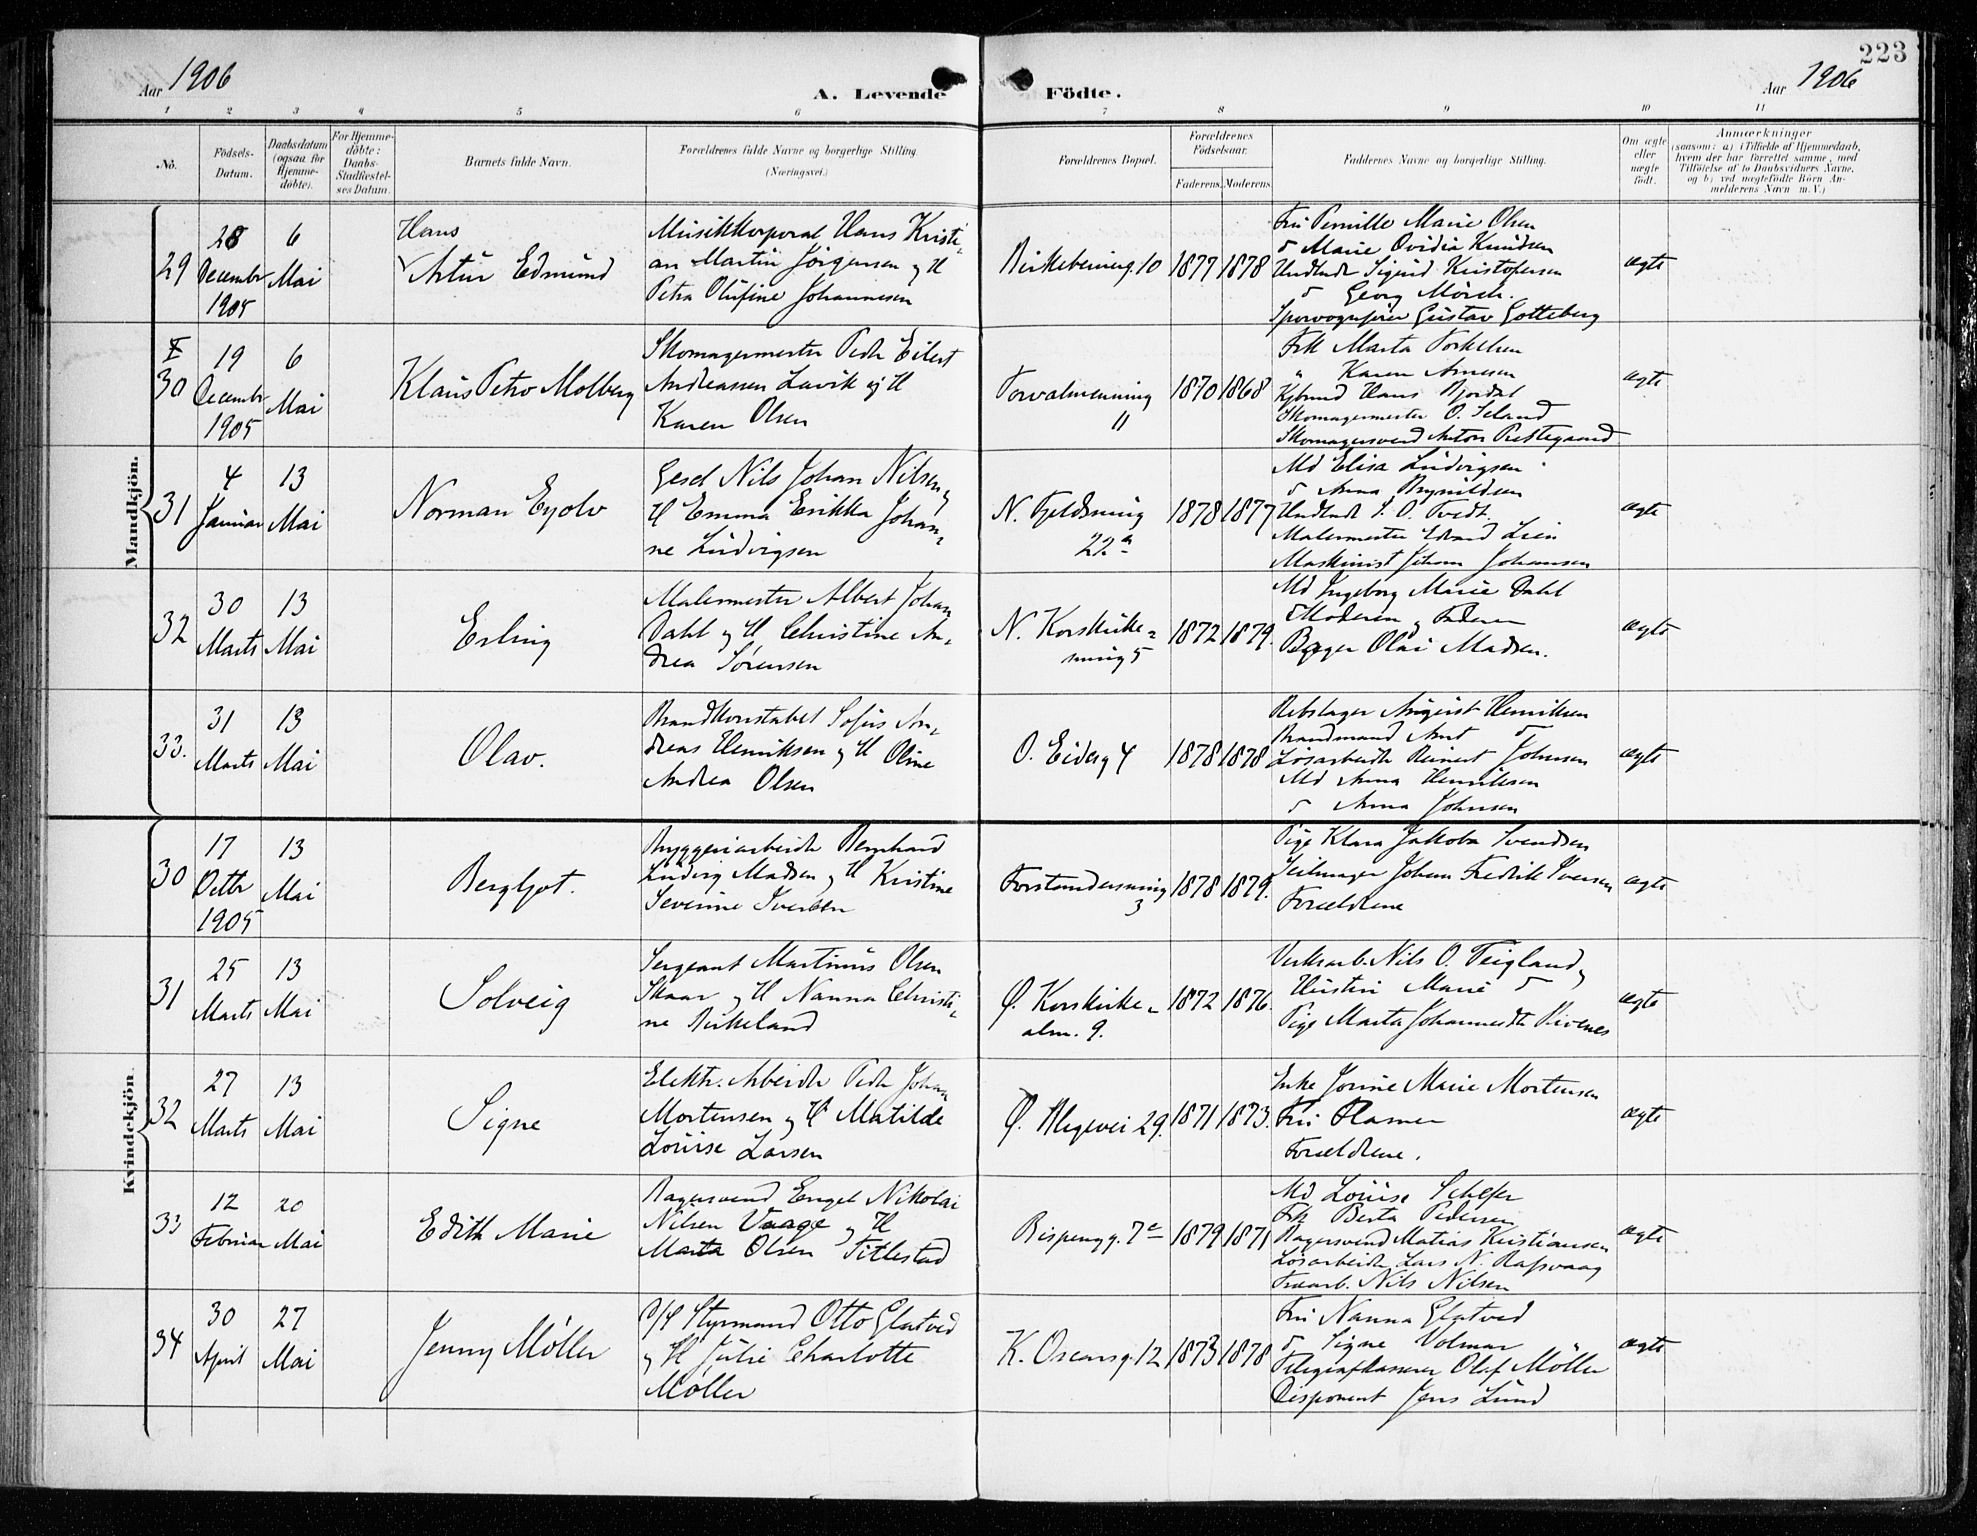 223
Aar 1906
A. Levende Födte.
Aar 1906
1 2 3 4 5 6 7 8 9 10 11
No.
Födsels-Datum.
Daabsdatum (ogsaa for Hjemme-döbte).
For Hjemme-döbte: Daabs-Stadfæstel-ses Datum.
Barnets fulde Navn.
Forældrenes fulde Navne og borgerlige Stilling (Næringsvei.)
Forældrenes Bopæl.
Forældrenes Födselsaar.
Faderens. Moderens.
Faddernes Navne og borgerlige Stilling.
Om ægte eller uægte födt.
Anmærkninger
(saasom: a) i Tilfælde af Hjemmedaab, hvem der har forrettet samme, med Tilföielse af to Daabsvidners Navne, og b) ved uægtefödte Börn An-melderens Navn m. V.)
Mandkjön.
29
28 Decembr 1905
6 Mai
Hans
Artur Edmund
Musikkorporal Hans Kristi-
an Martin Jörgensen og H
Petra Olufine Johannesen
Birkebeinerg. 10
1877 1878
Fru Pernille Marie Olsen
Marie Ovidia Knudsen
Sigurd Kristofersen
Georg Mörch.
Sporvognsfører Gustav Gotteberg
ægte
30
19 Decembr 1905
6 Mai
Klaus Petro Molberg
Skomagermester Pedr Eilert
Andreassen Lavik og H
Karen Olsen
Torvalmenning
11
1870 1868
Frk Marta Torkelsen
" Karen Arnesen
Hans Bjordal
Skomagermester O. Iland
Skomagersvend Anton Prestegaard
ægte
31
4 Januar
13 Mai
Norman Eyolv
Gesel Nils Johan Nilsen og
H Emma Erikka Johan-
ne Ludvigsen
N. Fjeldsmug
22a
1878 1877
Md Elisa Ludvigsen
Anna Brynildsen
Tvedt
Malermester Edvard Lien
Maskinist Johan Johansen
ægte
32
30 Marts
13 Mai
Erling
Malermester Albert Johan
Dahl og H Christine An-
drea Sørensen
N. Korskirke-
smug 5
1872 1879.
Md Ingeborg Marie Dahl
Moderen og Faderen
Bager Olai Madsen.
ægte
33.
31 Marts
13 Mai
Olav.
Brandkonstabel Sofus An-
dreas Henriksen og H Oline
Andrea Olsen
O. Eidesg 4
1878 1878
Rebslager August Henriksen
Brandmand Arnt
Løsarbeidr Reinert Johnsen
Md Anna Henriksen
Anna Johnsen
ægte
Kvindekjön.
30
17 Octbr 1905
13 Mai
Bergljot.
Bryggeriarbeidr Bernhard
Ludvig Madsen og H Kristine
Severine Iversen
Forstandersmug
3
1878 1879.
Pige Klara Jakoba Svendsen
Seilmager Johan Fredrik Iversen
Forældrene
ægte
31
25 Marts
13 Mai
Solveig
Sergeant Martinus Olsen
Skaar og H Nanna Christi-
ne Birkeland
Ø. Korskirke-
alm. 9.
1872 1876.
Verksarb. Nils O. Teigland og
Hustru Marie
Pige Marta Johannesdtr Rivenes
ægte
32
27 Marts
13 Mai
Signe
Elektr. Arbeidr Pedr Johan
Mortensen og H Matilde
Louise Larsen
Ø. Blegevei 29.
1871 1873.
Enke Jorine Marie Mortensen
Fru Hamer
Forældrene.
ægte
33
12 Februar
20 Mai
Edith Marie
Bagersvend Engel Nikolai
Nilsen Vaage og H
Marta Olsen Titlestad
Bispengg. 7c
1879 1871
Md Louise Schefer
Frk Berta Pedersen
Bagersvend Matias Kristiansen
Løsarbeidr Lars N. Rafsvaag
Nils Nilsen
ægte
34
30 April
27 Mai
Jenny Møller
D/S Styrmand Otto Glatved
og H Julie Charlotte
Møller
K. Oscarsg. 12
1873 1878
Fru Nanna Glatved
Signe Volmar
Telegrafkasserer Olaf Møller
Disponent Jens Lund
ægte